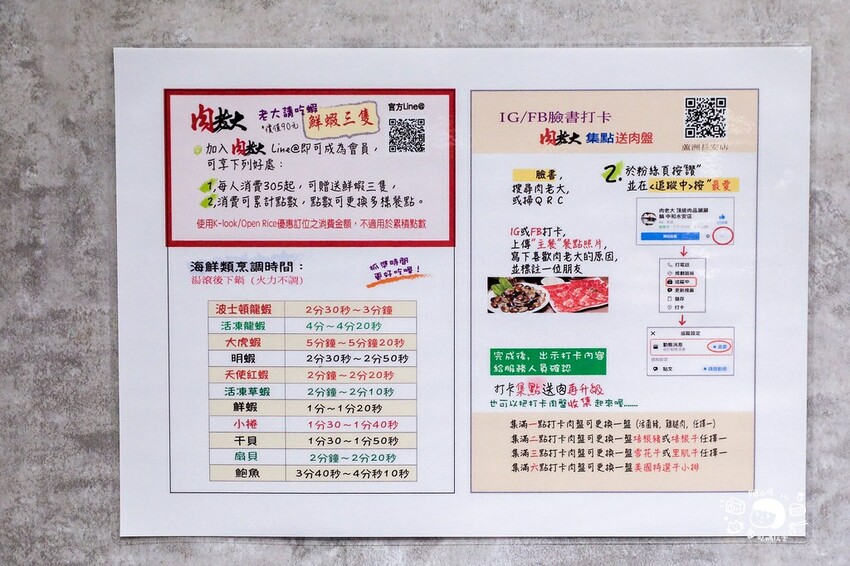 肉老大 老大請吃蝦
*價值90元
鮮蝦三隻
官方Line@
加入 肉老大 Line@即可成為會員,
可享下列好處:
1,每人消費305起,可贈送鮮蝦三隻,
2,消費可累計點數,點數可更換多樣餐點。
使用K-look/Open Rice優惠訂位之消費金額,不適用於累積點數
海鮮類烹調時間:
湯滾後下鍋(火力不調)
抓準時間
更好吃喔!
波士頓龍蝦 2分30秒~3分鐘
活凍龍蝦 4分~4分20秒
大虎蝦 5分鐘~5分鐘20秒
明蝦 2分30秒~2分50秒
天使紅蝦 2分鐘~2分20秒
活凍草蝦 2分鐘~2分10秒
鮮蝦 1分~1分20秒
小捲 1分30~1分40秒
干貝 1分30~1分50秒
扇貝 2分鐘~2分20秒
鮑魚 3分40秒~4分秒10秒
IG/FB臉書打卡
肉老大 集點送肉盤
蘆洲長安店
臉書,
搜尋肉老大,
或掃QRC
2.於粉絲頁按"讚"
並在<追蹤中>按"最愛"
肉老大 頂級肉品涮涮
鍋 中和永安店
IG或FB打卡,
上傳"主餐"餐點照片,
寫下喜歡肉老大的原因,
並標註一位朋友
打電話
追蹤中
儲存
打卡
追蹤設定
動態消息
貼文
完成後,出示打卡內容
給服務人員確認
打卡集點送肉再升級
也可以把打卡肉盤收集起來喔......
集滿一點打卡肉盤可更換一盤(培根豬,雞腿肉,任擇一)
集滿二點打卡肉盤可更換一盤培根豬或培根牛任擇一
集滿三點打卡肉盤可更換一盤雪花牛或里肌牛任擇一
集滿六點打卡肉盤可更換一盤美國特選牛小排